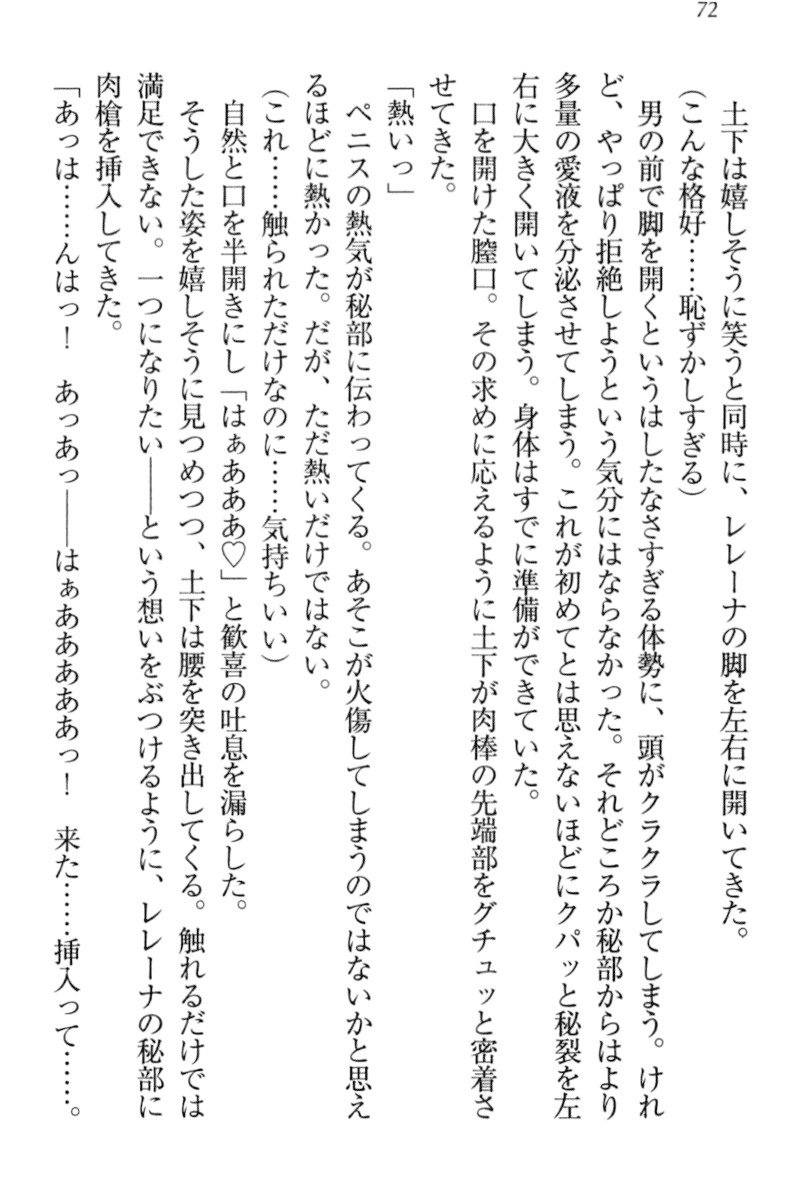 72
土下は嬉しそうに笑うと同時に、レレーナの脚を左右に開いてきた。
(こんな格好……恥ずかしすぎる)
男の前で脚を開くというはしたなさすぎる体勢に、頭がクラクラしてしまう。けれ
ど、やっぱり拒絶しようという気分にはならなかった。それどころか秘部からはより
多量の愛液を分泌させてしまう。これが初めてとは思えないほどにクパッと秘裂を左
右に大きく開いてしまう。身体はすでに準備ができていた。
口を開けた膣口。その求めに応えるように土下が肉棒の先端部をグチュッと密着さ
せてきた。
「熱いっ」
ペニスの熱気が秘部に伝わってくる。あそこが火傷してしまうのではないかと思え
るほどに熱かった。だが、ただ熱いだけではない。
(これ……触られただけなのに……気持ちいい)
自然と口を半開きにし「はぁあああ♡」と歓喜の吐息を漏らした。
そうした姿を嬉しそうに見つめつつ、土下は腰を突き出してくる。触れるだけでは
満足できない。一つになりたい――という想いをぶつけるように、レレーナの秘部に
肉槍を挿入してきた。
「あっは……んはっ！　あっあっ――はぁあああああっ！　来た……挿入って……。